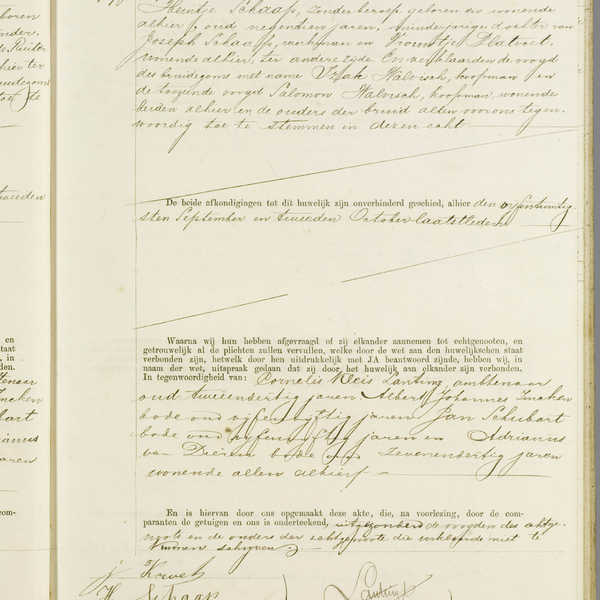 Heintje Schaap, zonder beroep, geboren en wonende
alhier, oud negentien jaren, minderjarige dochter van
Joseph Schaap, werkman en Vrouwtje
wonende alhier, ter andere zijde En verklaarden de voogd
des bruidegoms met name Izak Walvisch, koopman en
de toeziende voogd Salomon Walvisch, koopman, wonende
beiden alhier en de ouders der bruid allen voorons tegen-
woordig toe te stemmen in dezen echt
De beide afkondigingen tot dit huwelijk zijn onverhinderd geschied, alhier den vijfentwintig-
sten September en tweeden October laatstleden
Waarna wij hun hebben afgevraagd of zij elkander aannemen tot echtgenooten, en
getrouwelijk al de plichten zullen vervullen, welke door de wet aan den huwelijkschen staat
verbonden zijn, hetwelk door hen uitdrukkelijk met JA beantwoord zijnde, hebben wij, in
naam der wet, uitspraak gedaan dat zij door het huwelijk aan elkander zijn verbonden.
In tegenwoordigheid van: Cornelis Lanting, ambtenaar
oud tweeendertig jaren Albert Johannes
bode oud vijfenvijftig jaren Jan Schubart
bode oud vijfenvijftig jaren en Adrianus
van Diezen bode oud zevenendertig jaren
wonende allen alhier
En is hiervan door ons opgemaakt deze akte, die, na voorlezing, door de com-
paranten de getuigen en ons is onderteekend, uitgezonderd de voogden des echtge-
noots en de ouders der echtgenoote die verklaarden niet te
kunnen schrijven
H Schaap Lanting